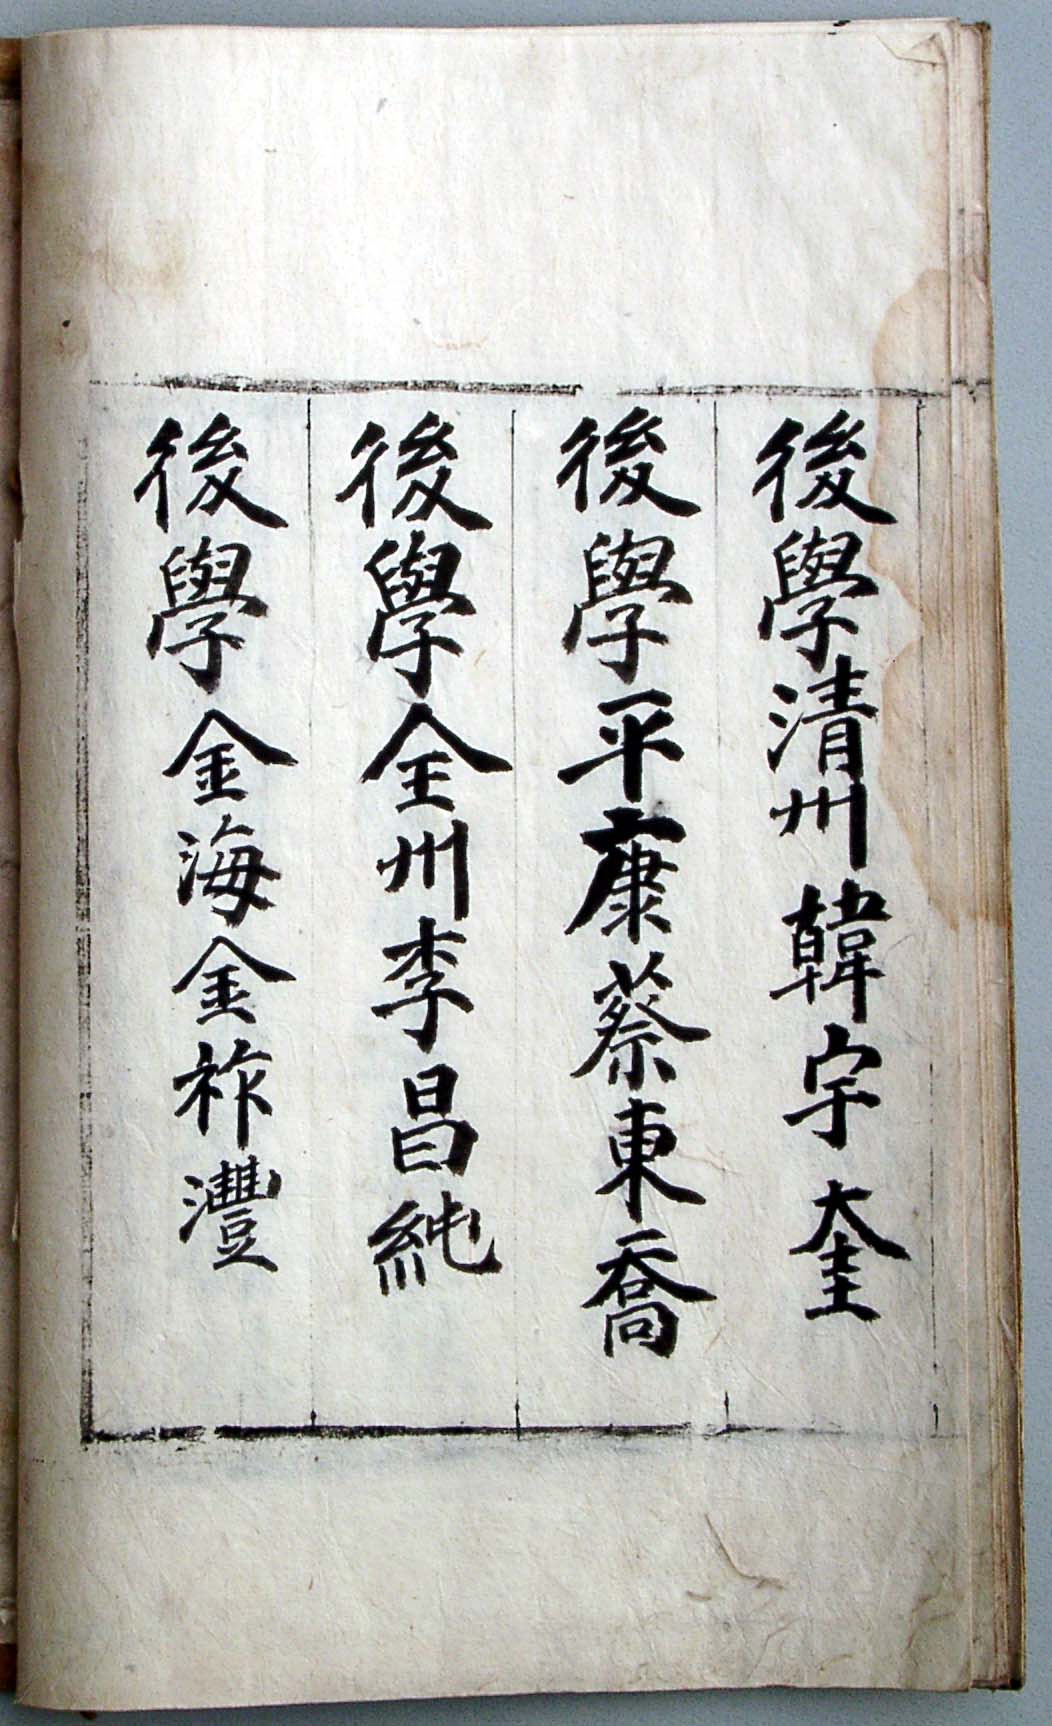 後學清州韓宇奎
後學平康蔡東喬
後學全州李昌純
後學金海金祚灃